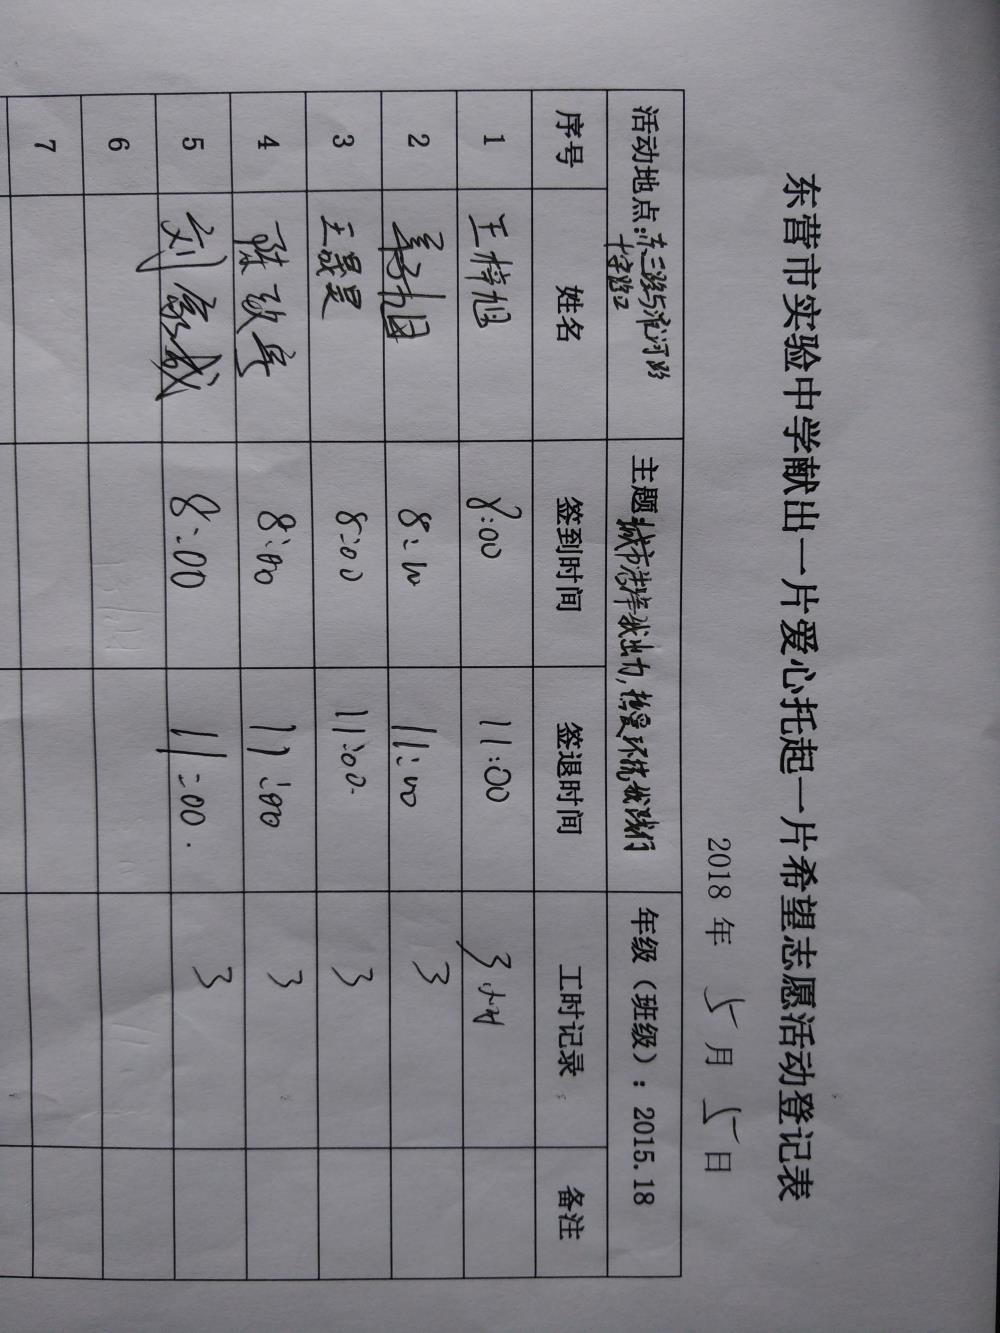 东营市实验中学献出一片爱心托起一片希望志愿活动登记表
2018 年 5 月 5 日
活动地点:东三路与淮河路十字路口 主题:城市洁净我出力,热爱环境 年级(班级):2015.18
序号 姓名 签到时间 签退时间 工时记录 备注
1 王梓旭 8:00 11:00 3小时
2 8:00 11:00 3
3 王晟昊 8:00 11:00 3
4 陈 8:00 11:00 3
5 刘家诚 8:00 11:00 3
6
7